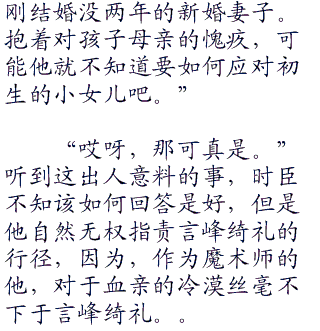 刚结婚没两年的新婚妻子。
抱着对孩子母亲的愧疚，可
能他就不知道要如何应对初
生的小女儿吧。”
“哎呀，那可真是。”
听到这出人意料的事，时臣
不知该如何回答是好，但是
他自然无权指责言峰绮礼的
行径，因为，作为魔术师的
他，对于血亲的冷漠丝毫不
下于言峰绮礼。。